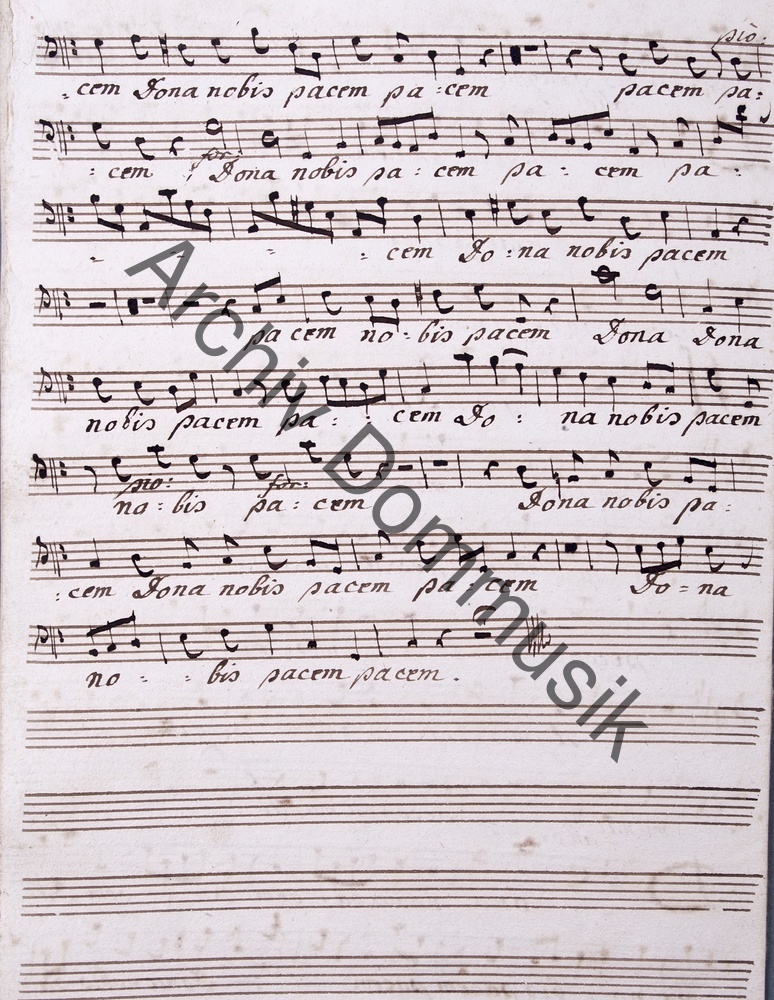 pið:
: cem Dona nobis pacem pa : cem pacem pa :
: cem Dona nobis pa : cem pa : cem pa :
for:
- - = : cem Do : na nobis pacem
pa cem no : bis pacem Dona Dona
nobis pacem pa : : cem Do : na nobis pacem
no : bis pa : cem Dona nobis pa :
pio: for:
: cem Dona nobis pacem pa : cem Do = na
no : : bis pacem pacem .
Archiv Dommusik